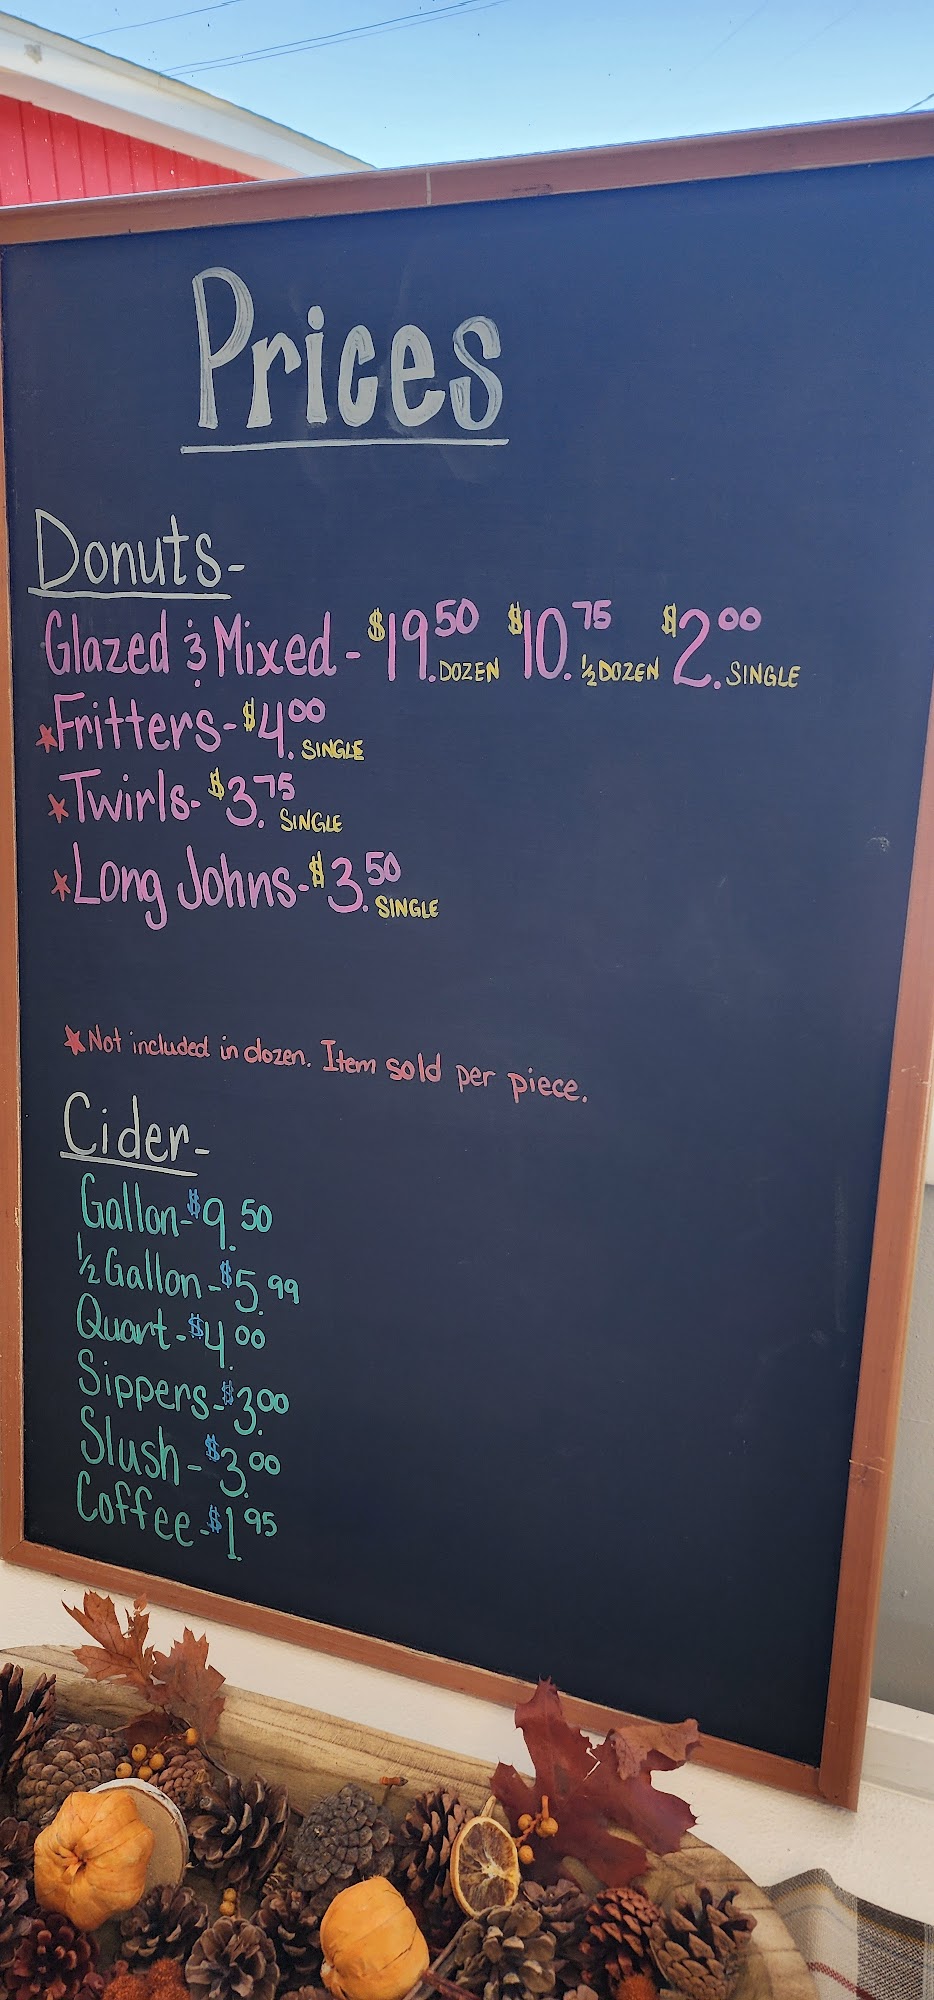 Prices
Donuts-
Glazed & Mixed - $19.50 DOZEN $10.75 ½ DOZEN $2.00 SINGLE
*Fritters- $4.00 SINGLE
*Twirls- $3.75 SINGLE
*Long Johns- $3.50 SINGLE
*Not included in dozen. Item sold per piece.
Cider-
Gallon- $9.50
½ Gallon - $5.99
Quart - $4.00
Sippers- $3.00
Slush - $3.00
Coffee - $1.95